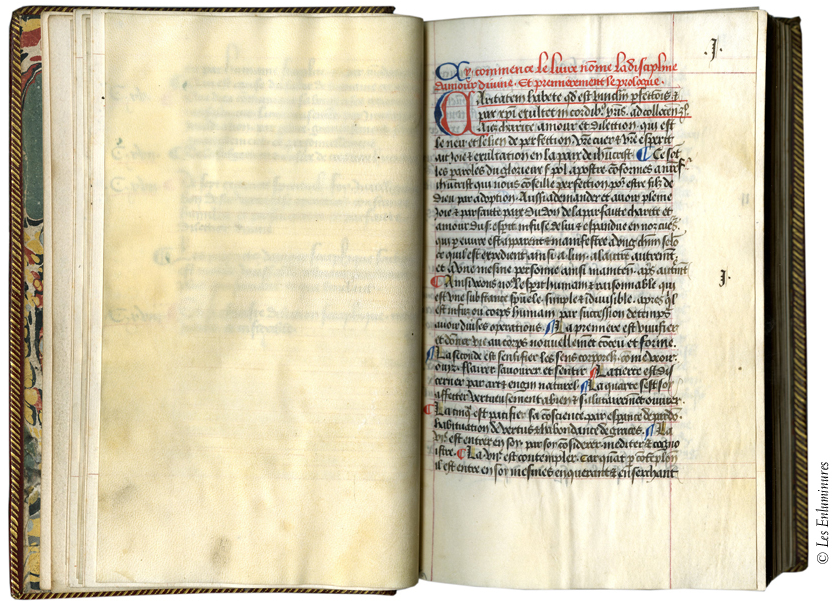 .J.
Cy commence le livre nome la discipline
damour divine. Et premierement le prologue.
Caritatem habete qd est vinculum pfectois &
pax xpi exultet in cordibus vris. ad collocen
charite amour et dilection qui est
le neu et le lien de perfection vre cuer & vre esperit
aut Joie & exultation en la paix de ihucrist. Ce sot
les paroles du glorieux s pol apostre coformes a
ihucrist qui nous coseille perfection po estre filz de
dieu par adoption. Aussi a demander et avoir pleine
Joie & parfaite paix du don de la parfaite charite et
amour du s. esprit infuse de luy & espandue en nos cuers
qui y euvre & est aparent & manifestee a ung chun selo
ce quil est expedient ainsi a lun. a lautre autremt
et a une mesme personne ainsi mainten. aps autremt
.J.
Ainsi veons no le spirit humain raisonnable qui
est une substance spuele simple & indivisible. apres ql
est infuz ou corps humain par succession de temps
avoir diverses operations. La premiere est vivifier
et doner vie au corps nouvellement coceu et forme.
La seconde est sentifier les sens corporelz. come veoir.
ouyr. flairer savourer et sentir. La tierce est dis
cerner par art & engin naturel. La quarte est soy
affecter vertueusement a bien & salutairement ouvrer.
La cinq est patifier sa coscience. par esperance de pardo.
habituation de vertus & habondance de graces. La
vje est entrer en soy par soy cosiderer. mediter & cogno
istre. La vije est contempler. Car quant p cotemplon
il est entre en soy mesmes enquerant & en serchant
© Les Enluminures